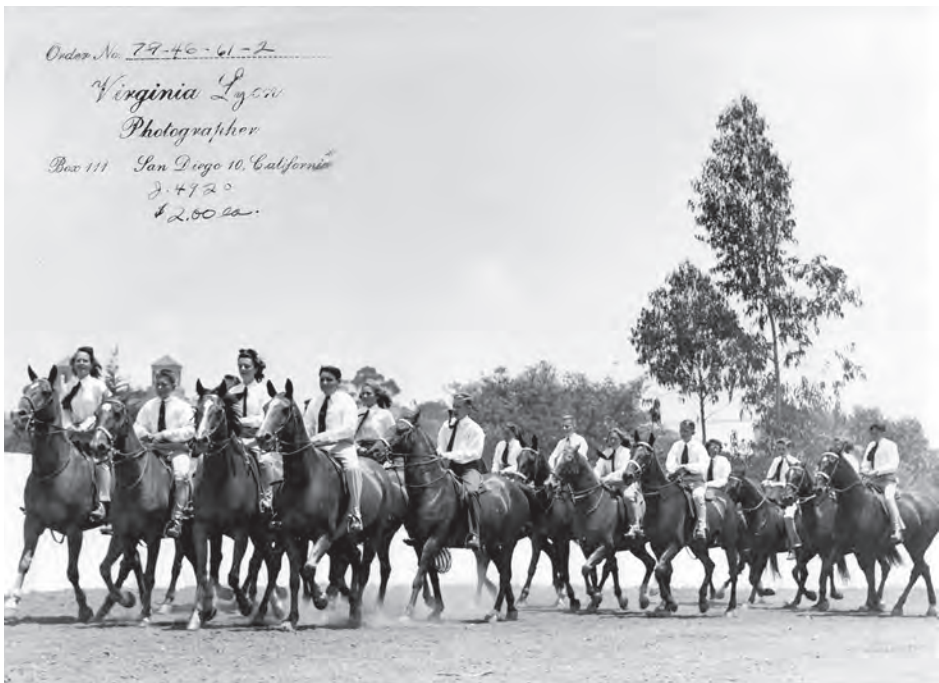 Order No. 79-46-61-2
Virginia Lyon
Photographer
Box 111 San Diego 10, California
J-4920
$2.00 ea.